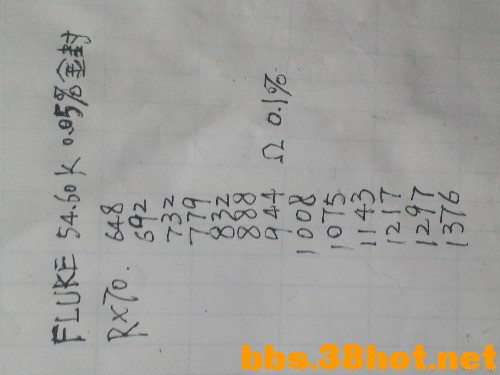 FLUKE 54.60K 0.05% 金封
RX70. 648
692
732
779
832
888
944 Ω 0.1%
1008
1075
1143
1217
1297
1376
bbs.38hot.net